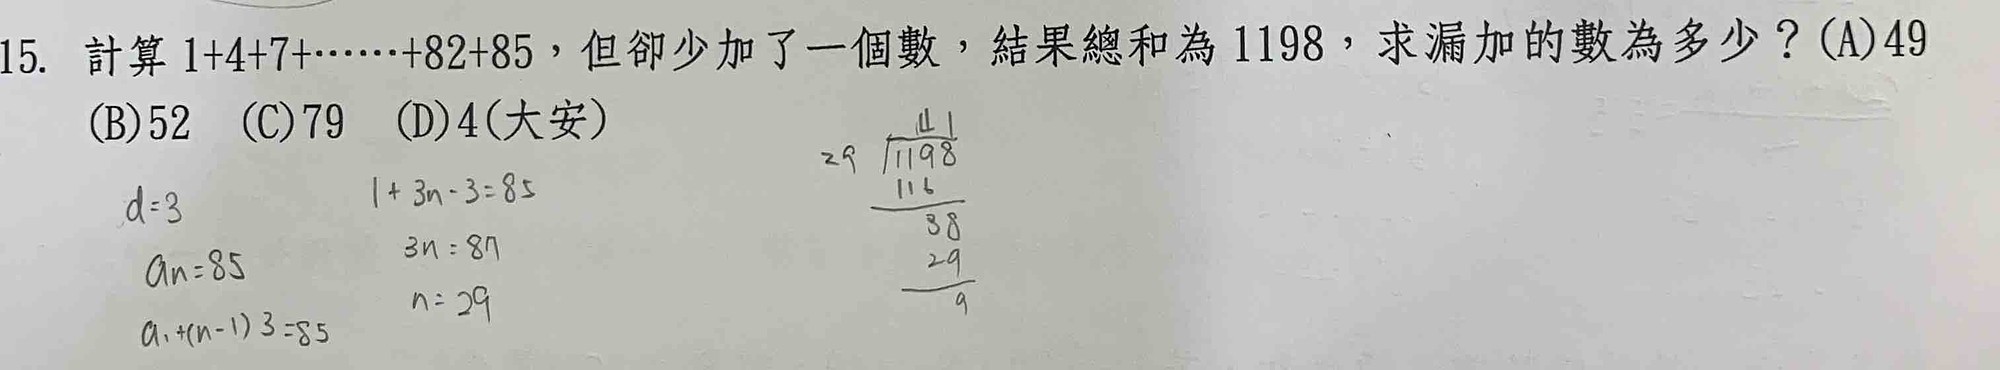 15. 計算 1+4+7+……+82+85，但卻少加了一個數，結果總和為 1198，求漏加的數為多少？(A)49
(B)52 (C)79 (D)4(大安)
d=3
an=85
a1+(n-1)3=85
1+3n-3=85
3n=87
n=29
41
29 1198
116
38
29
9